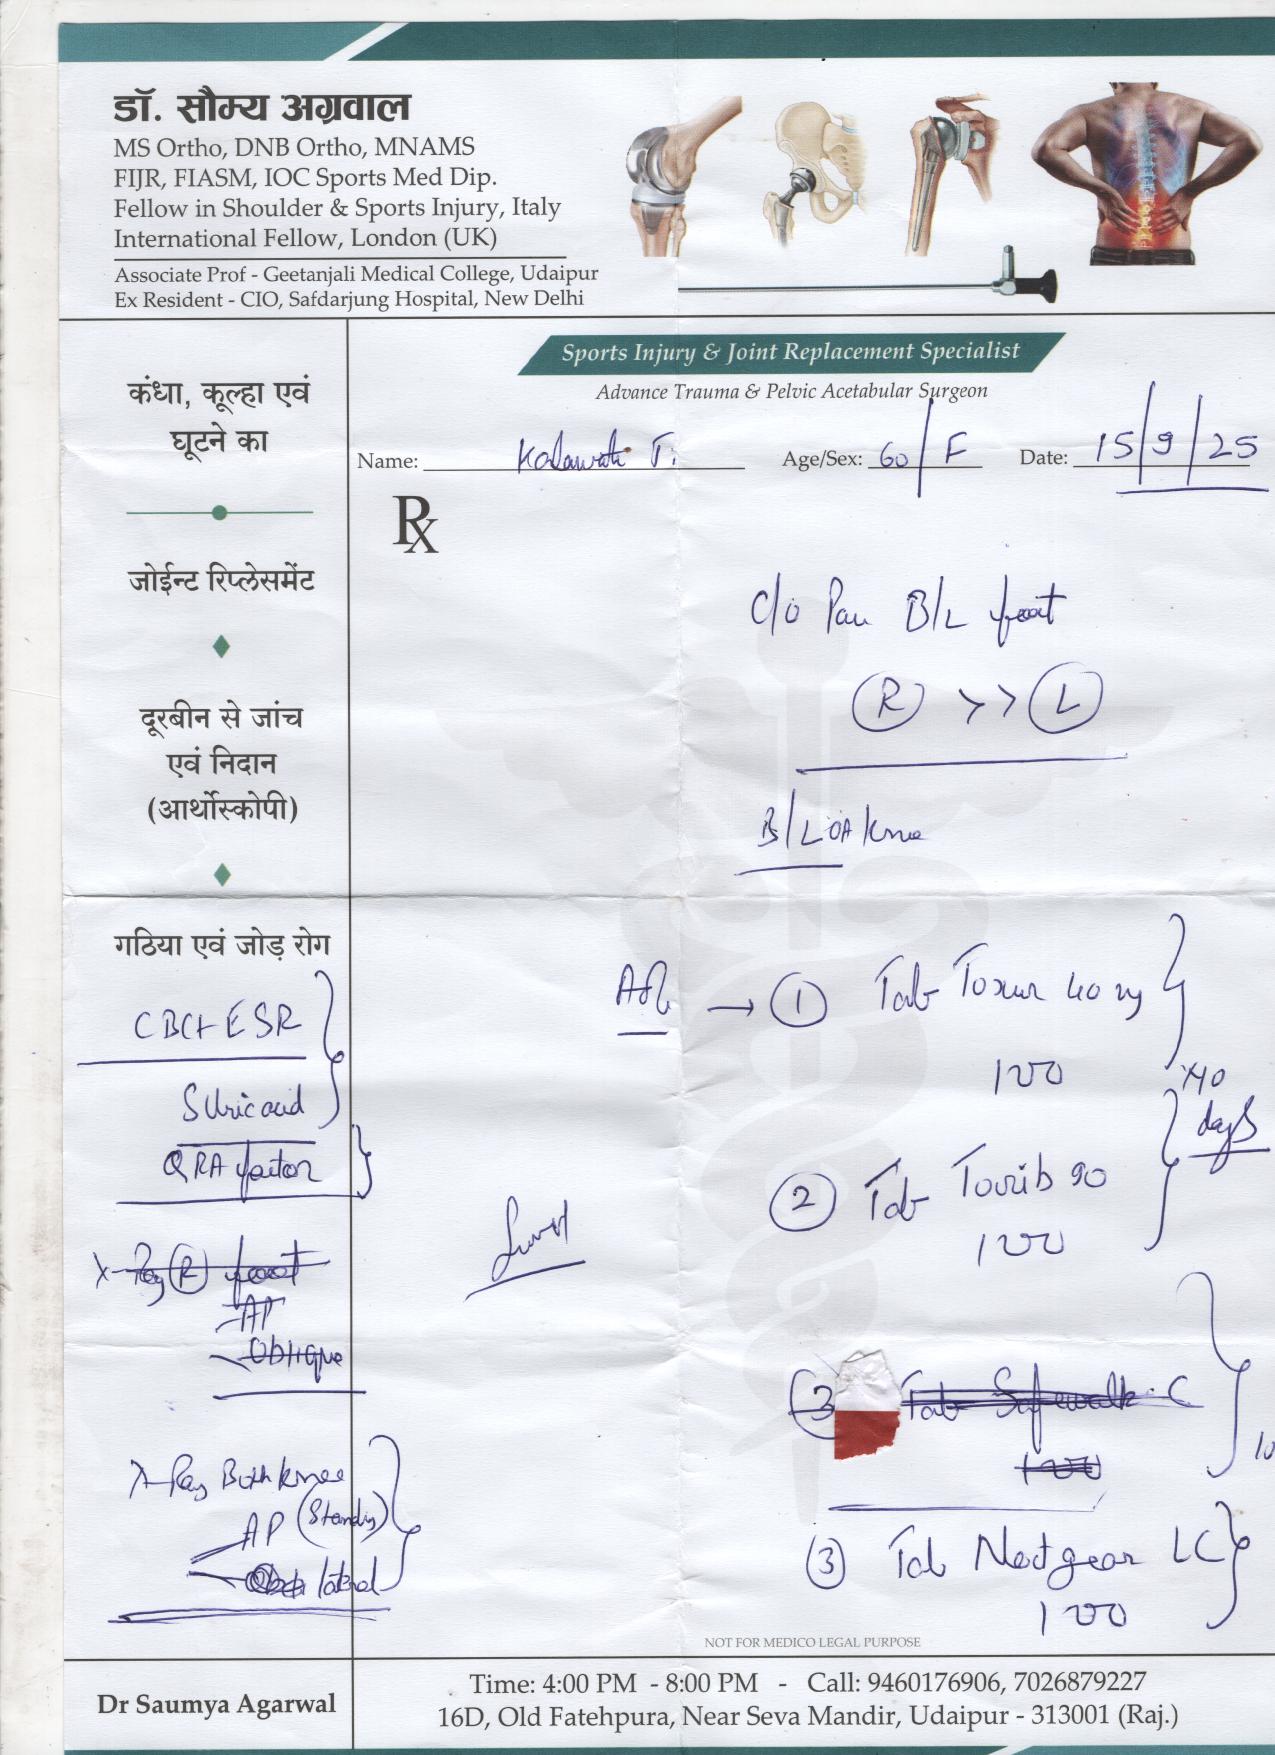 डॉ. सौम्य अग्रवाल
MS Ortho, DNB Ortho, MNAMS
FIJR, FIASM, IOC Sports Med Dip.
Fellow in Shoulder & Sports Injury, Italy
International Fellow, London (UK)
Associate Prof - Geetanjali Medical College, Udaipur
Ex Resident - CIO, Safdarjung Hospital, New Delhi
Sports Injury & Joint Replacement Specialist
Advance Trauma & Pelvic Acetabular Surgeon
Name: Kalawati T. Age/Sex: 60/F Date: 15/9/25
Rx
कंधा, कूल्हा एवं
घूटने का
जोईन्ट रिप्लेसमेंट
दूरबीन से जांच
एवं निदान
(आर्थोस्कोपी)
गठिया एवं जोड़ रोग
CBC + ESR
S Uric acid
RA factor
X-Ray (R) foot
AP
Oblique
X-Ray Both knee
AP (Standing)
lateral
C/o Pain B/L foot
(R) >> (L)
B/L OA knee
→ (1) Tab 40 mg
100
days
(2) Tab 90
100
(3 Tab Safewalk-C
100
10
(3) Tab Nextgear LC
100
NOT FOR MEDICO LEGAL PURPOSE
Dr Saumya Agarwal
Time: 4:00 PM - 8:00 PM - Call: 9460176906, 7026879227
16D, Old Fatehpura, Near Seva Mandir, Udaipur - 313001 (Raj.)